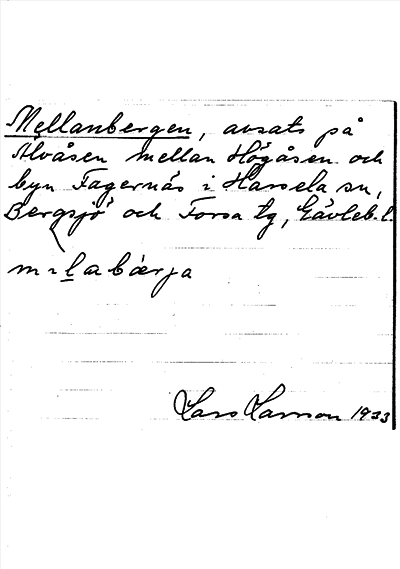 Mellanbergen, avsats på
Alvåsen mellan Högåsen och
byn Fagernäs i Hassela sn,
Bergsjö och Forsa tg, Gävleb. l.
Lars Larsson 1933